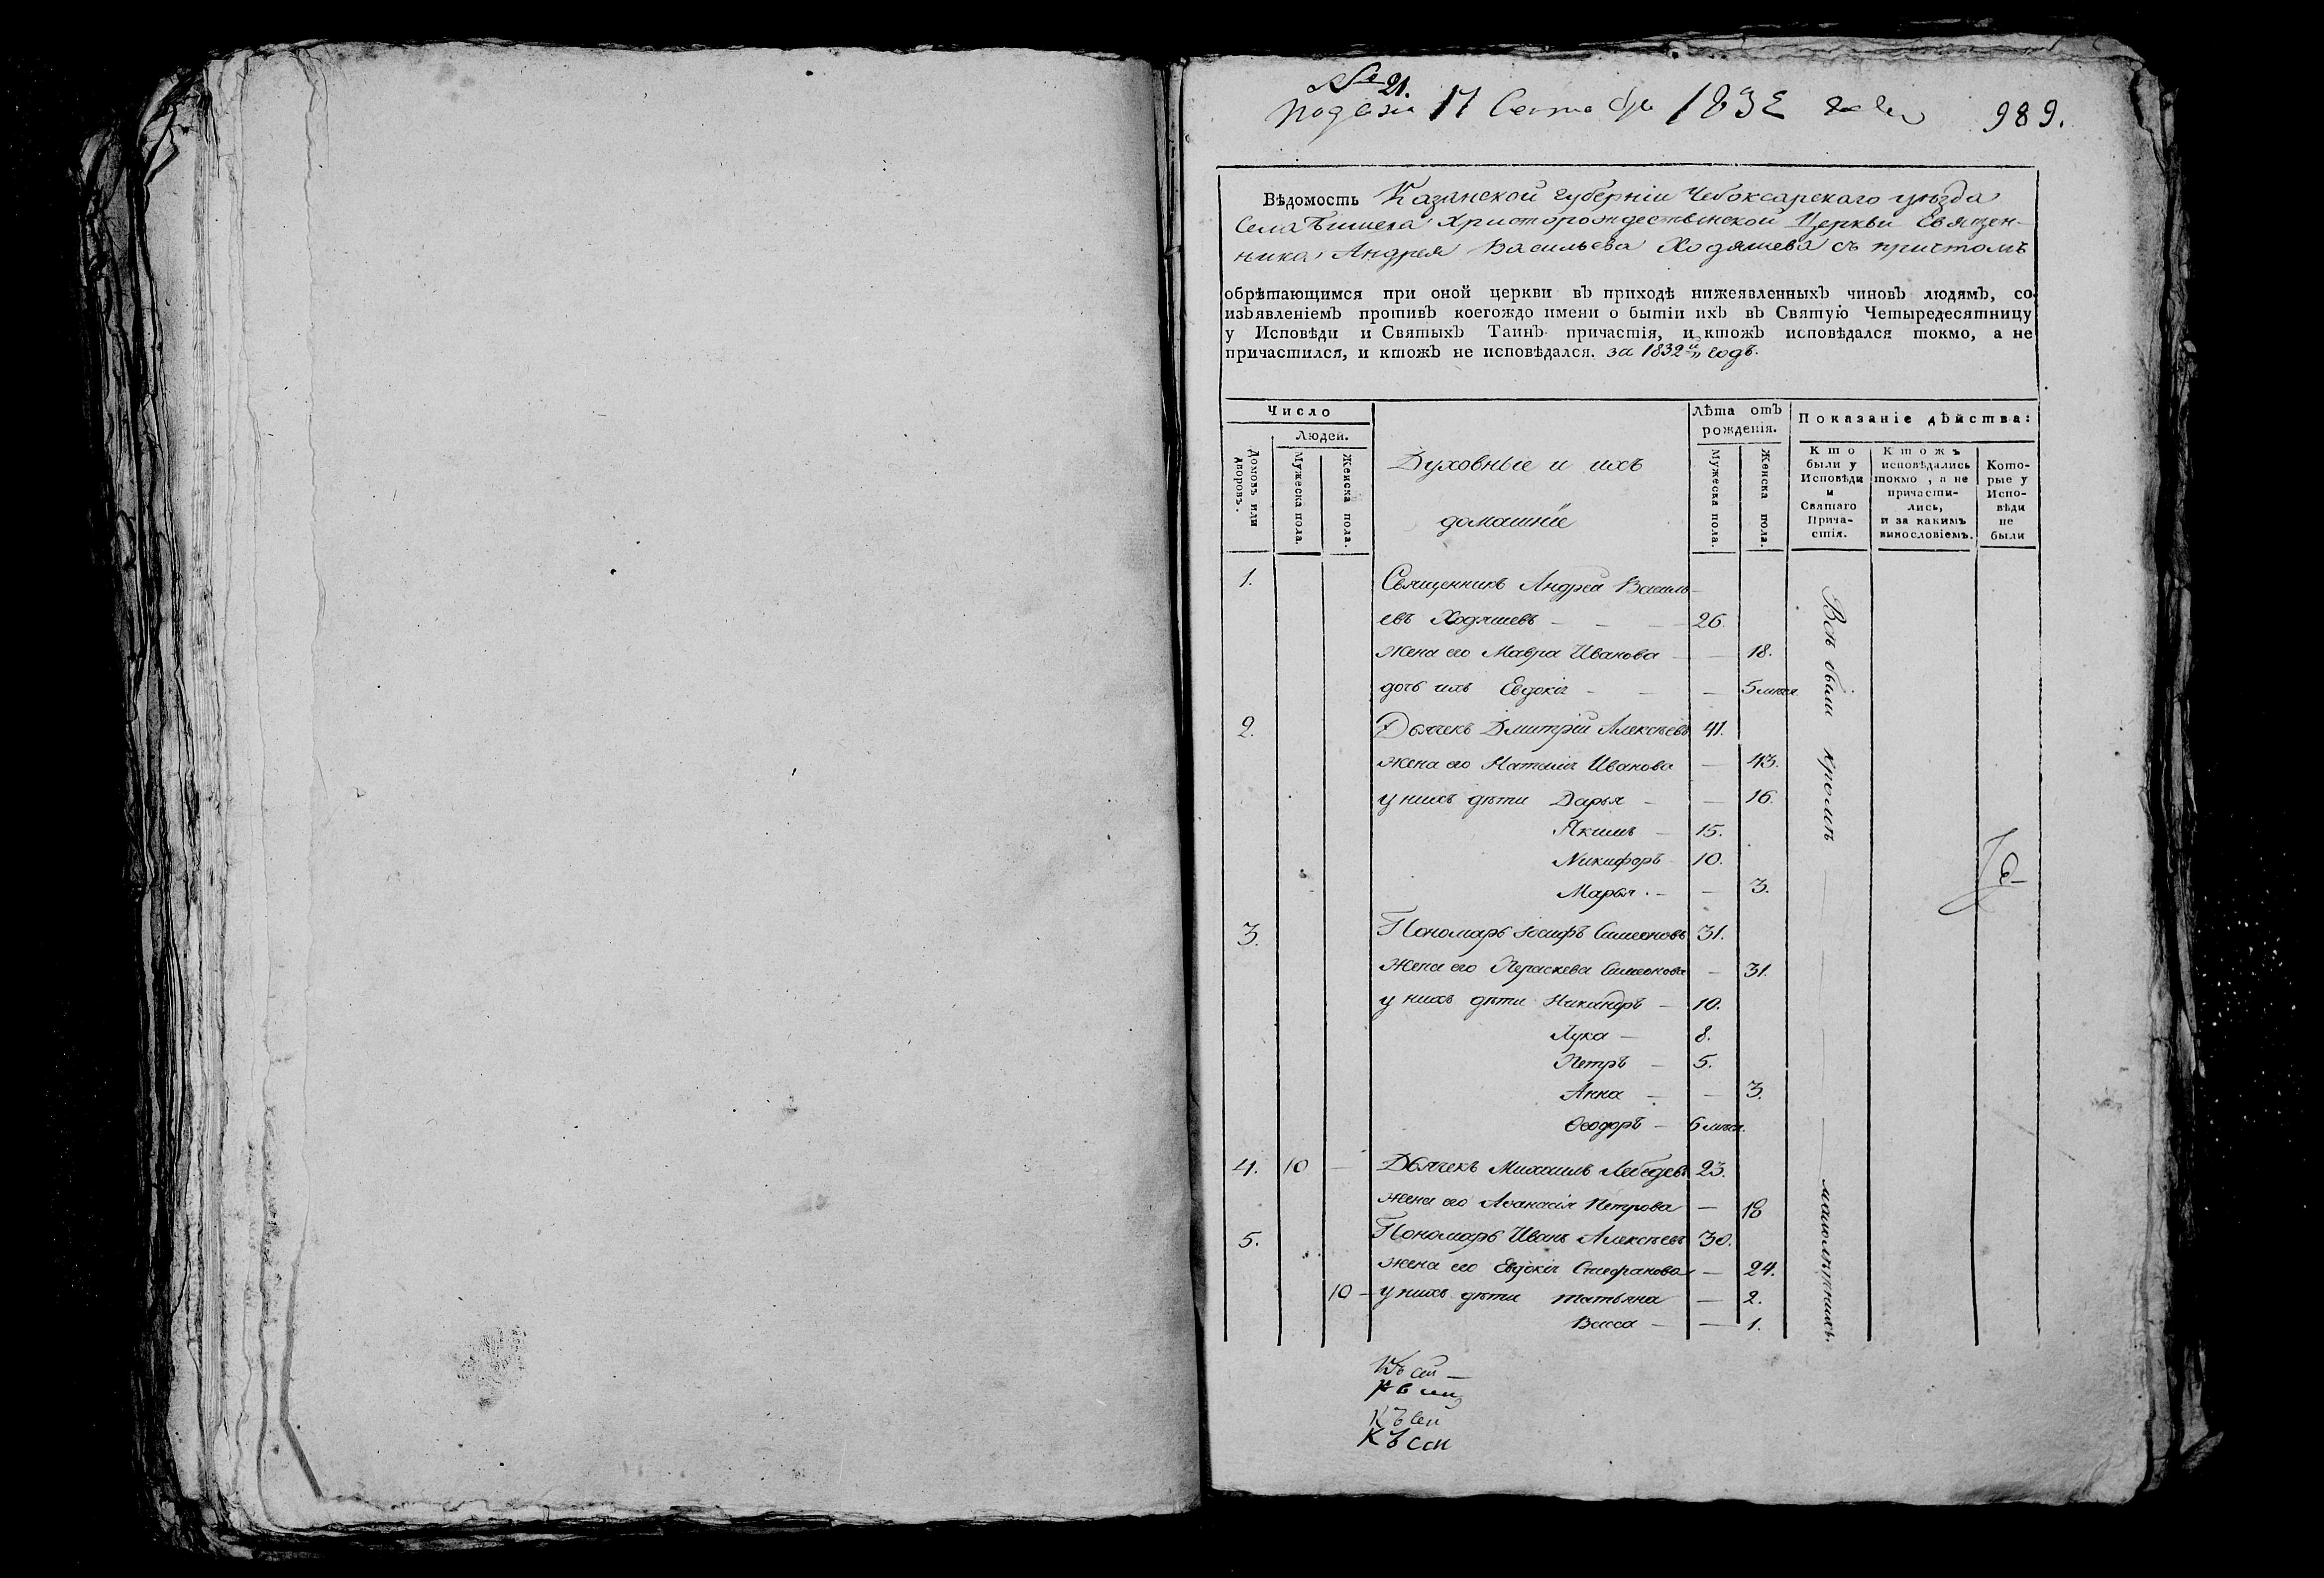 № 21.
подана 17 Сентября 1832 года
989.
Вѣдомость Казанской губерніи Чебоксарскаго уѣзда
Села Бишева Христорождественской Церкви Священ-
ника Андрея Васильева Ходяшева съ причтомъ
обрѣтающимся при оной церкви въ приходѣ нижеявленныхъ чиновъ людямъ, со
изъявленіемъ противъ коегождо имени о бытіи ихъ въ Святую Четыредесятницу
у Исповѣди и Святыхъ Таинъ причастія, и ктожъ исповѣдался токмо, а не
причастился, и ктожъ не исповѣдался. за 1832й годъ.
Число
Людей.
Домовъ или дворовъ.
Мужеска пола.
Женска пола.
Духовные и ихъ
домашніе
Лѣта отъ
рожденія.
Мужеска пола.
Женска пола.
Показаніе дѣйства:
Кто
были у
Исповѣди
и
Святаго
Прича-
стія.
Ктожъ
исповѣдались
токмо, а не
причасти-
лись,
и за какимъ
винословіемъ.
Кото-
рые у
Испо-
вѣди
не
были
1. Священникъ Андрей Василь-
евъ Ходяшевъ — — — 26.
жена его Мавра Иванова — — 18.
дочь ихъ Евдокія — — — 5 мѣся.
2. Дьячекъ Димитрій Алексѣевъ 41.
жена его Наталія Иванова — 43.
у нихъ дѣти Дарья — — 16.
Якимъ — 15.
Никифоръ 10.
Марья. — — 3.
3. Пономарь Іосифъ Симеоновъ 31.
жена его Параскева Симеонова — 31.
у нихъ дѣти Никандръ — 10.
Лука — 8.
Петръ — 5.
Анна — — 3.
Ѳеодоръ — 6 мѣся.
4. 10 — Дьячекъ Михаилъ Лебедевъ 23.
жена его Аѳанасія Петрова — 18
5. Пономарь Иванъ Алексѣевъ 30.
жена его Евдокія Стефанова — 24.
10 — у нихъ дѣти Татьяна — 2.
Васса — — 1.
Всѣ были кромѣ — малолѣтнихъ.
Къ сей